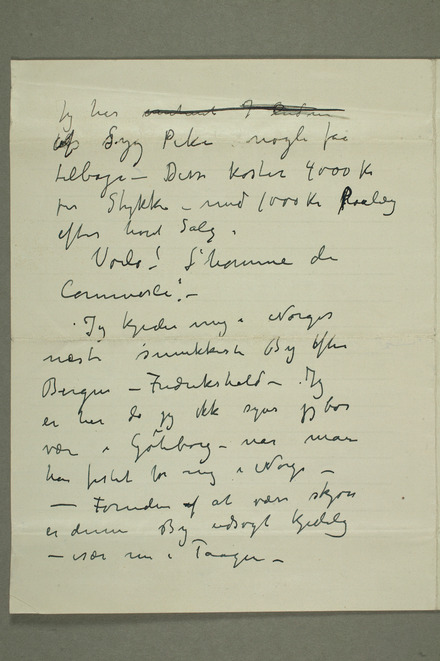 Jeg har
af Syg Pike nogle faa
tilbage – Disse koster 4000 Kr
pr Stykke – med 1000 Kr Paalæg
efter hvert Salg.
Voila! L'homme de
Commerce! –
Jeg kjeder mig i Norges
næst smukkeste By efter
Bergen – Fredrikshald – Jeg
er her da jeg ikke synes jeg bør
være i Göteborg – naar man
har festet for mig i Norge –
– Foruden af at være skjøn
er denne By udsøgt kjedelig
– især nu i Taagen –